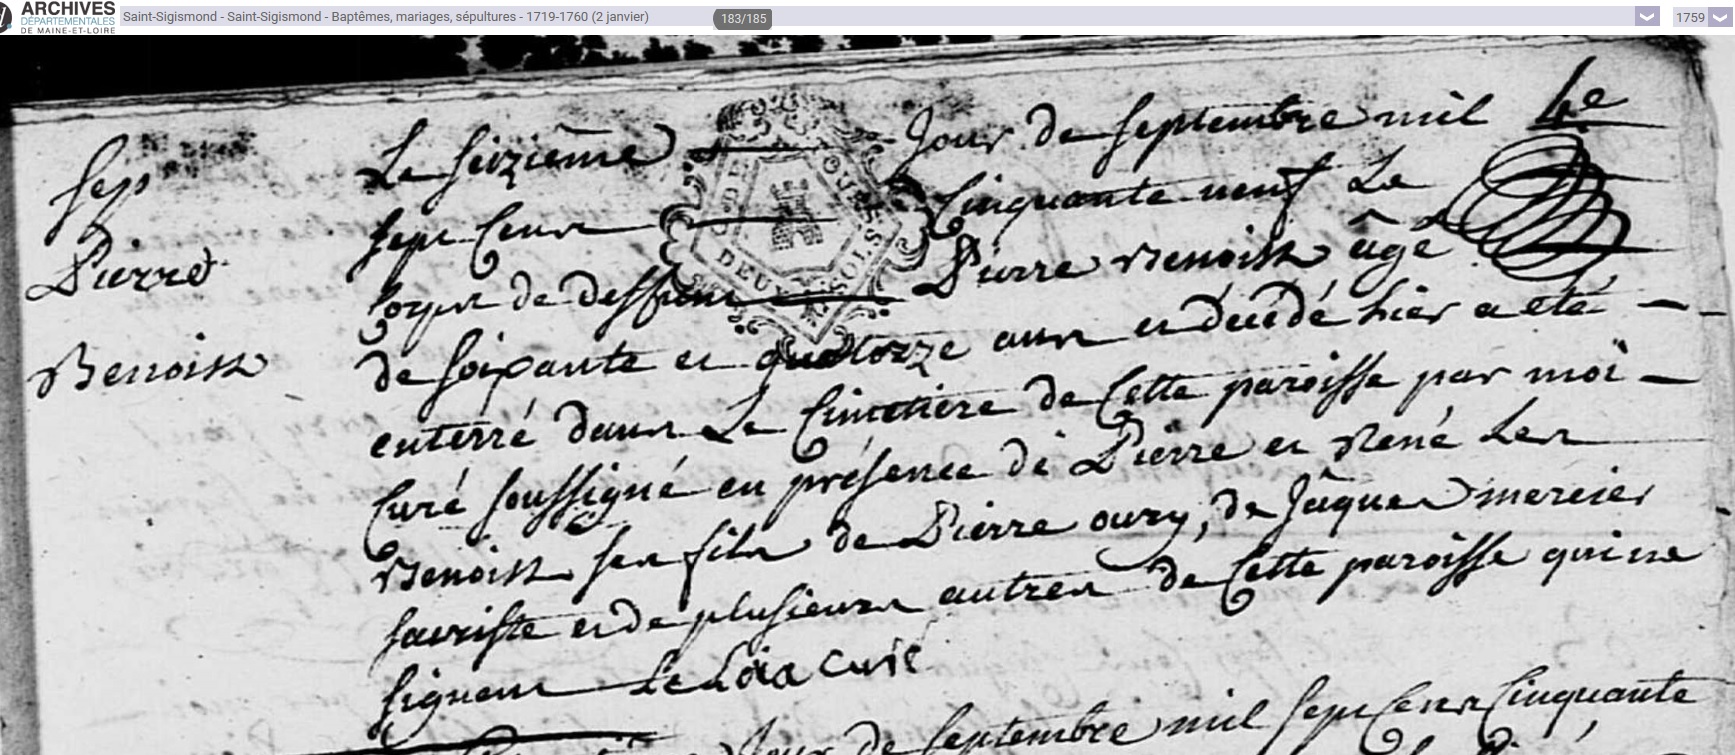 ARCHIVES
DÉPARTEMENTALES
DE MAINE-ET-LOIRE
Saint-Sigismond - Saint-Sigismond - Baptêmes, mariages, sépultures - 1719-1760 (2 janvier)
183/185
1759
Sep
Pierre
Benoist
Le seizième jour de septembre mil
sept Cent Cinquante neuf Le
corps de deffunt Pierre Benoist âgé
de soixante et quatorze ans et décédé hier a eté
enterré dans Le Cimetiere de Cette paroisse par moi
Curé soussigné en présence de Pierre et René Les
Benoist ses fils de Pierre oury, de Jâques mercier
sacriste et de plusieurs autres de Cette paroisse qui ne
signent curé
DEUX SOLS
4e
jour de septembre mil sept Cent Cinquante